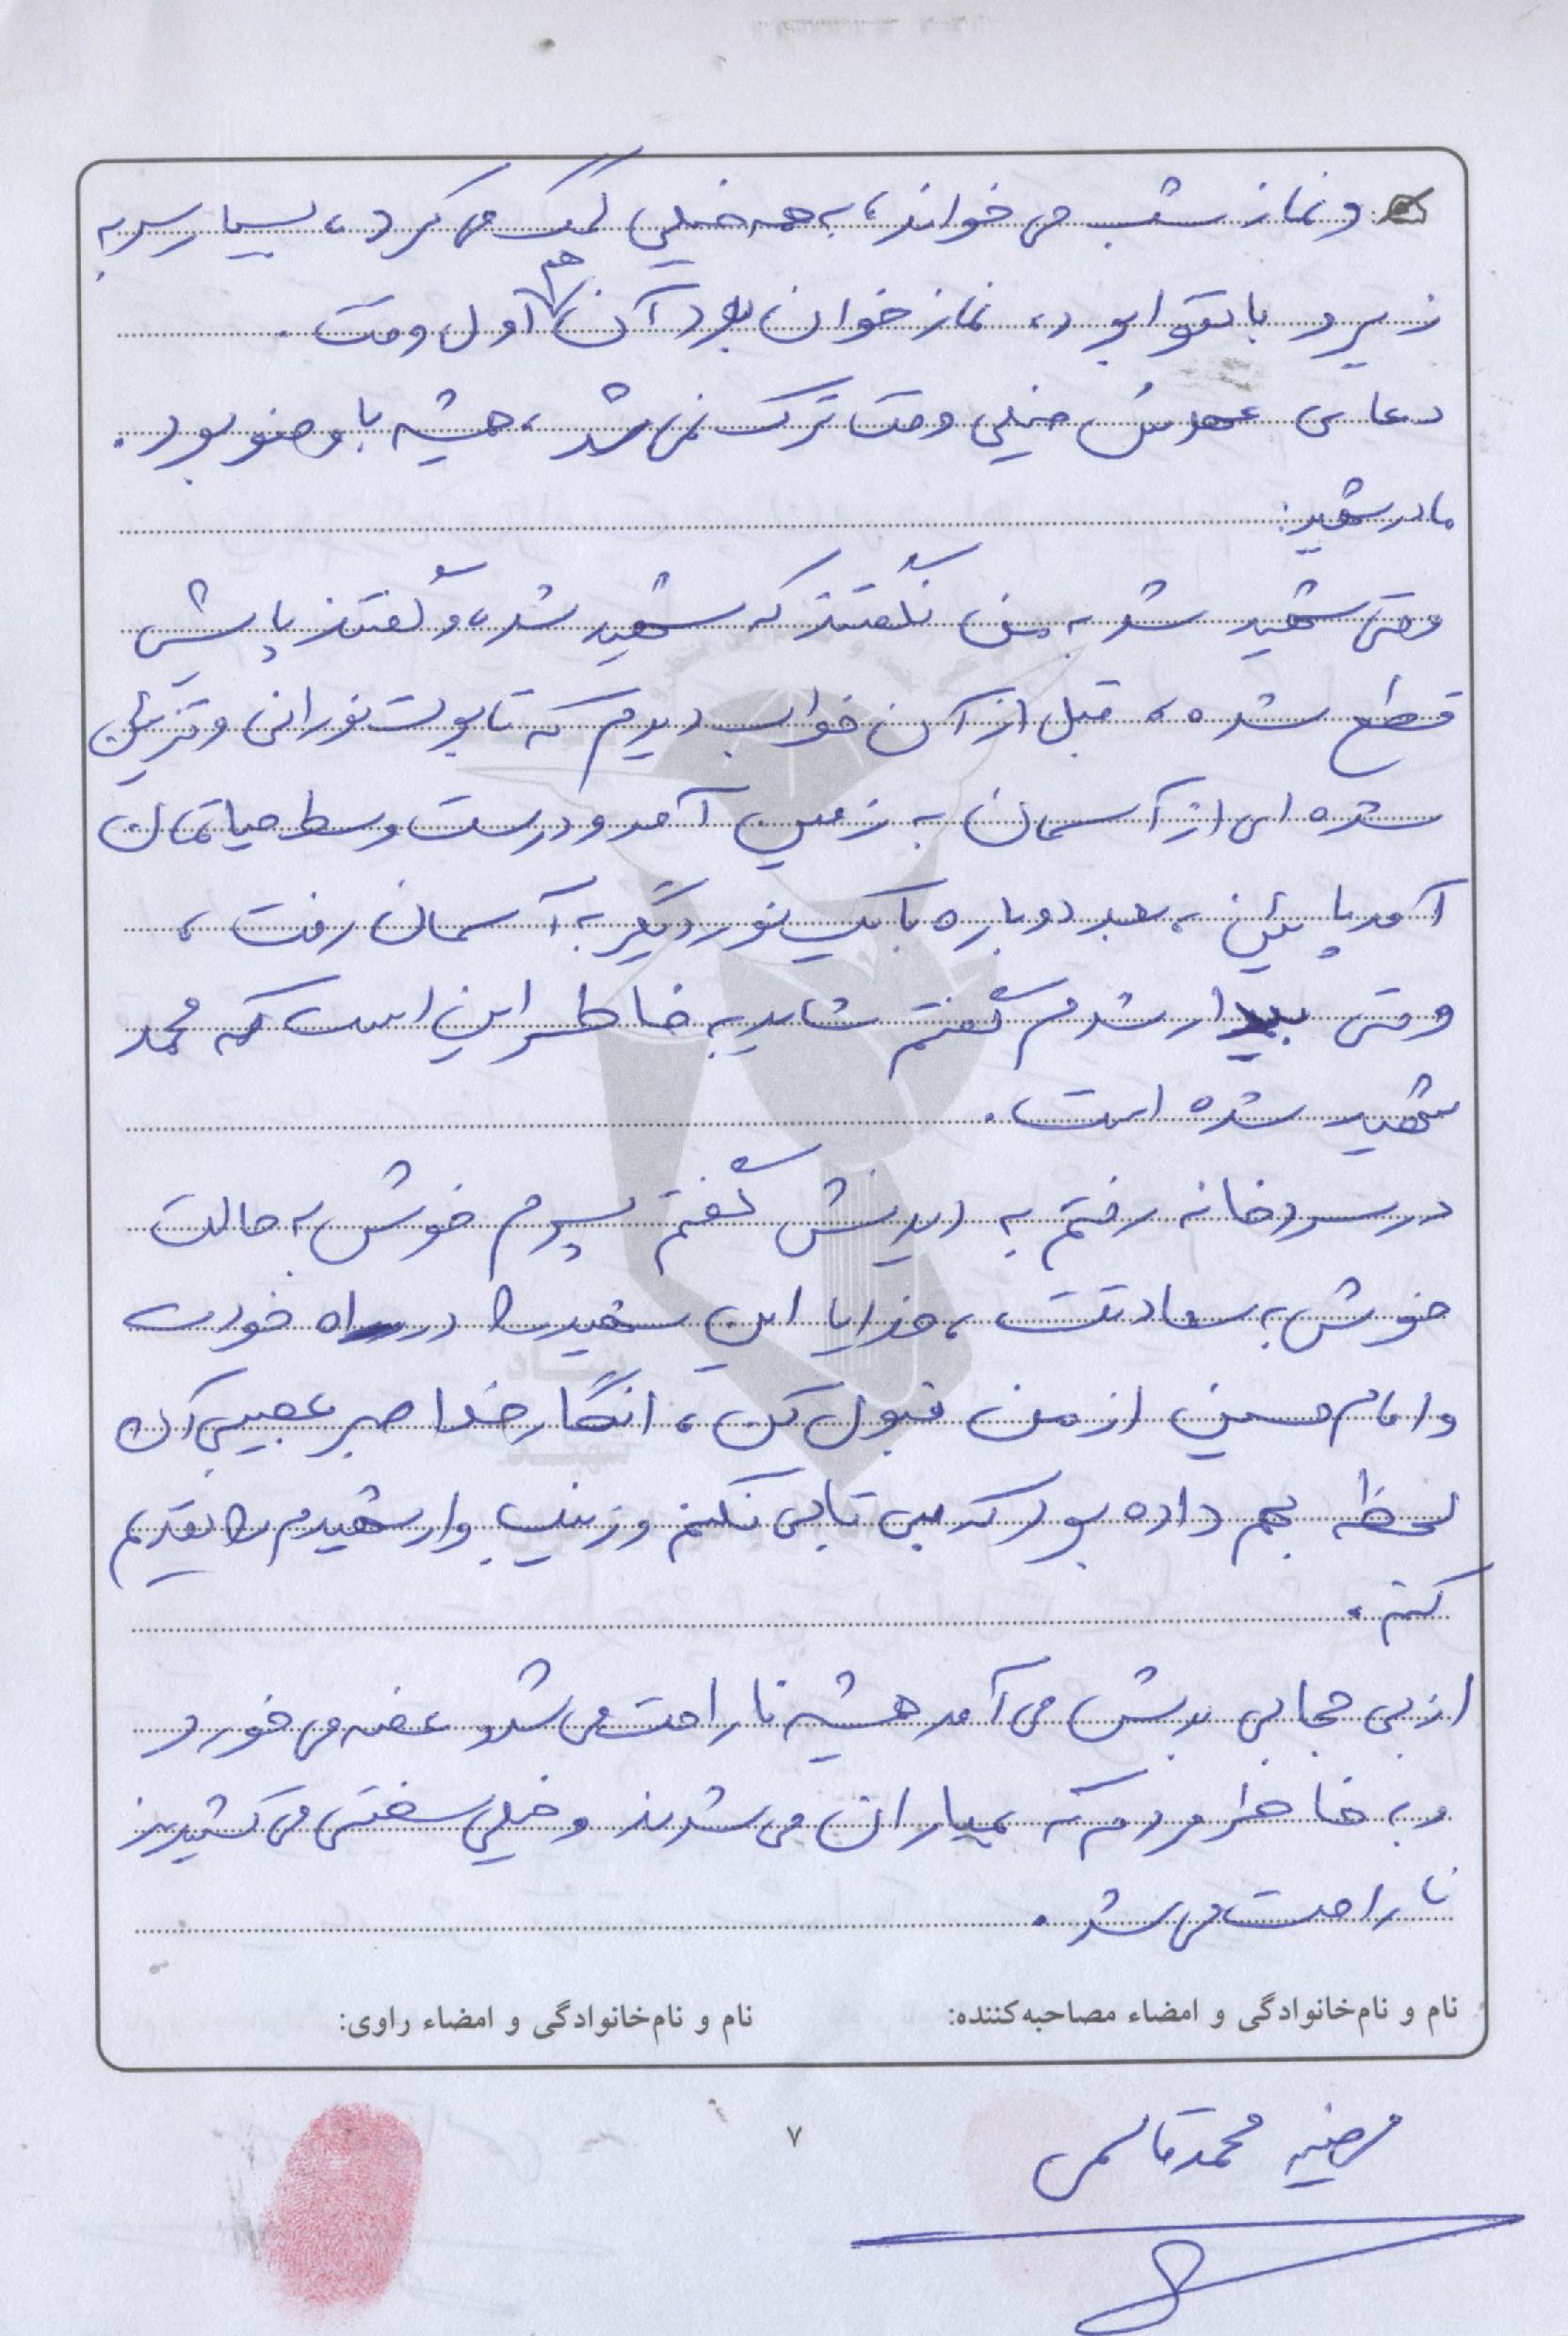 و نماز شب می خواند، به همه خیلی کمک می کرد، بسیار سر به
زیر و با تقوا بود، نماز خوان بود آن هم اول وقت.
دعای عهدش خیلی وقت ترک نمی شد، همیشه با وضو بود.
مادر شهید:
وقتی شهید شد به من نگفتند که شهید شده و گفتند پایش
قطع شده، قبل از آن خواب دیدم که تابوت نورانی و تزئین
شده ای از آسمان به زمین آمد و درست وسط حیاتمان
آمد پائین، بعد دوباره با یک نور دیگر به آسمان رفت،
وقتی بیدار شدم گفتم شاید به خاطر این است که محمد
شهید شده است.
در سردخانه رفتم به دیدنش گفتم پسرم خوش به حالت
خوش به سعادتت، خدایا این شهید را در راه خودت
و امام حسین از من قبول کن، انگار خدا صبر عجیبی آن
لحظه بهم داده بود که بی تابی نکنم و زینب وار شهیدم را تقدیم
کنم.
از بی حجابی بدش می آمد همیشه ناراحت می شد و غصه می خورد
و به خاطر مردم که بمباران می شدند و خیلی سختی می کشیدند
ناراحت می شد.
نام و نام‌خانوادگی و امضاء مصاحبه‌کننده:
نام و نام‌خانوادگی و امضاء راوی:
مرضیه محمدقاسمی
۷